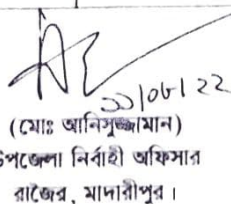 ২২/০৮/২২
(মোঃ আনিসুজ্জামান)
উপজেলা নির্বাহী অফিসার
রাজৈর, মাদারীপুর।